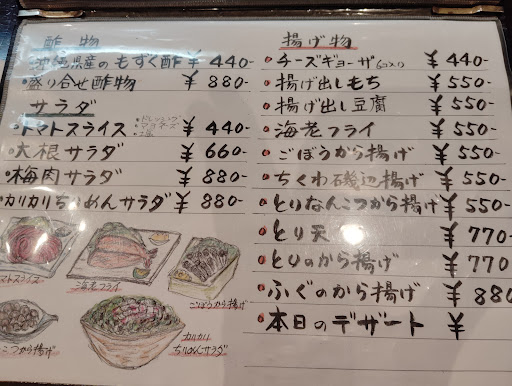 酢物
沖縄県産のもずく酢 ¥440-
盛り合せ酢物 ¥880-
サラダ
トマトスライス ¥440-
・ドレッシング
・マヨネーズ
・塩
大根サラダ ¥660-
梅肉サラダ ¥880-
カリカリちりめんサラダ ¥880-
揚げ物
チーズギョーザ ¥440-
揚げ出しもち ¥550-
揚げ出し豆腐 ¥550-
海老フライ ¥550-
ごぼうから揚げ ¥550-
ちくわ磯辺揚げ ¥550-
とりなんこつから揚げ ¥550-
とり天 ¥770-
とりのから揚げ ¥770-
ふぐのから揚げ ¥880
本日のデザート ¥
トマトスライス
海老フライ
ごぼうから揚げ
こつから揚げ
カリカリ
ちりめんサラダ